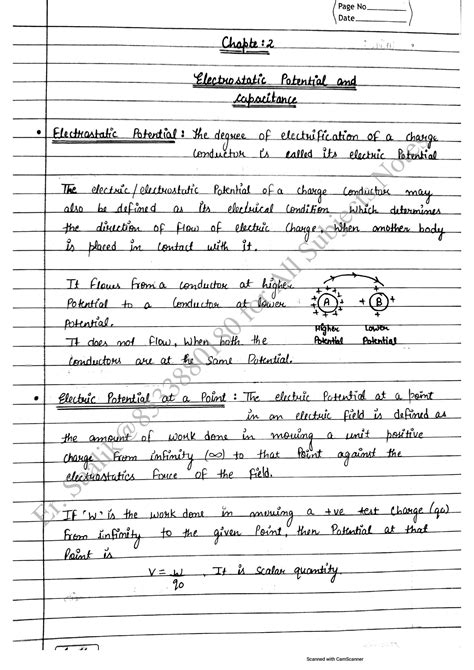 Page No
Date
Chapte:2
Electrostatic Potential and
Capacitance
• Electrostatic Potential: the degree of electrification of a charge
conductor is called its electric Potential
The electric/electrostatic Potential of a charge conductor may
also be defined as its electrical Condition which determines
the direction of flow of electric Charge, When another body
is placed in contact with it.
It flows from a conductor at higher
Potential to a conductor at lower
Potential.
A B
Higher Lower
Potential Potential
It does not flow, When both the
conductors are at the Same Potential.
• Electric Potential at a Point: The electric Potential at a point
in an electric field is defined as
the amount of work done in moving a unit positive
charge from infinity (∞) to that Point against the
electrostatics force of the field.
If 'W' is the work done in moving a +ve test charge (qo)
from infinity to the given Point, then Potential at that
Point is
V = W/qo , It is scalar quantity.
Er. Sadik@8333880180 for All Subjects Notes
Scanned with CamScanner